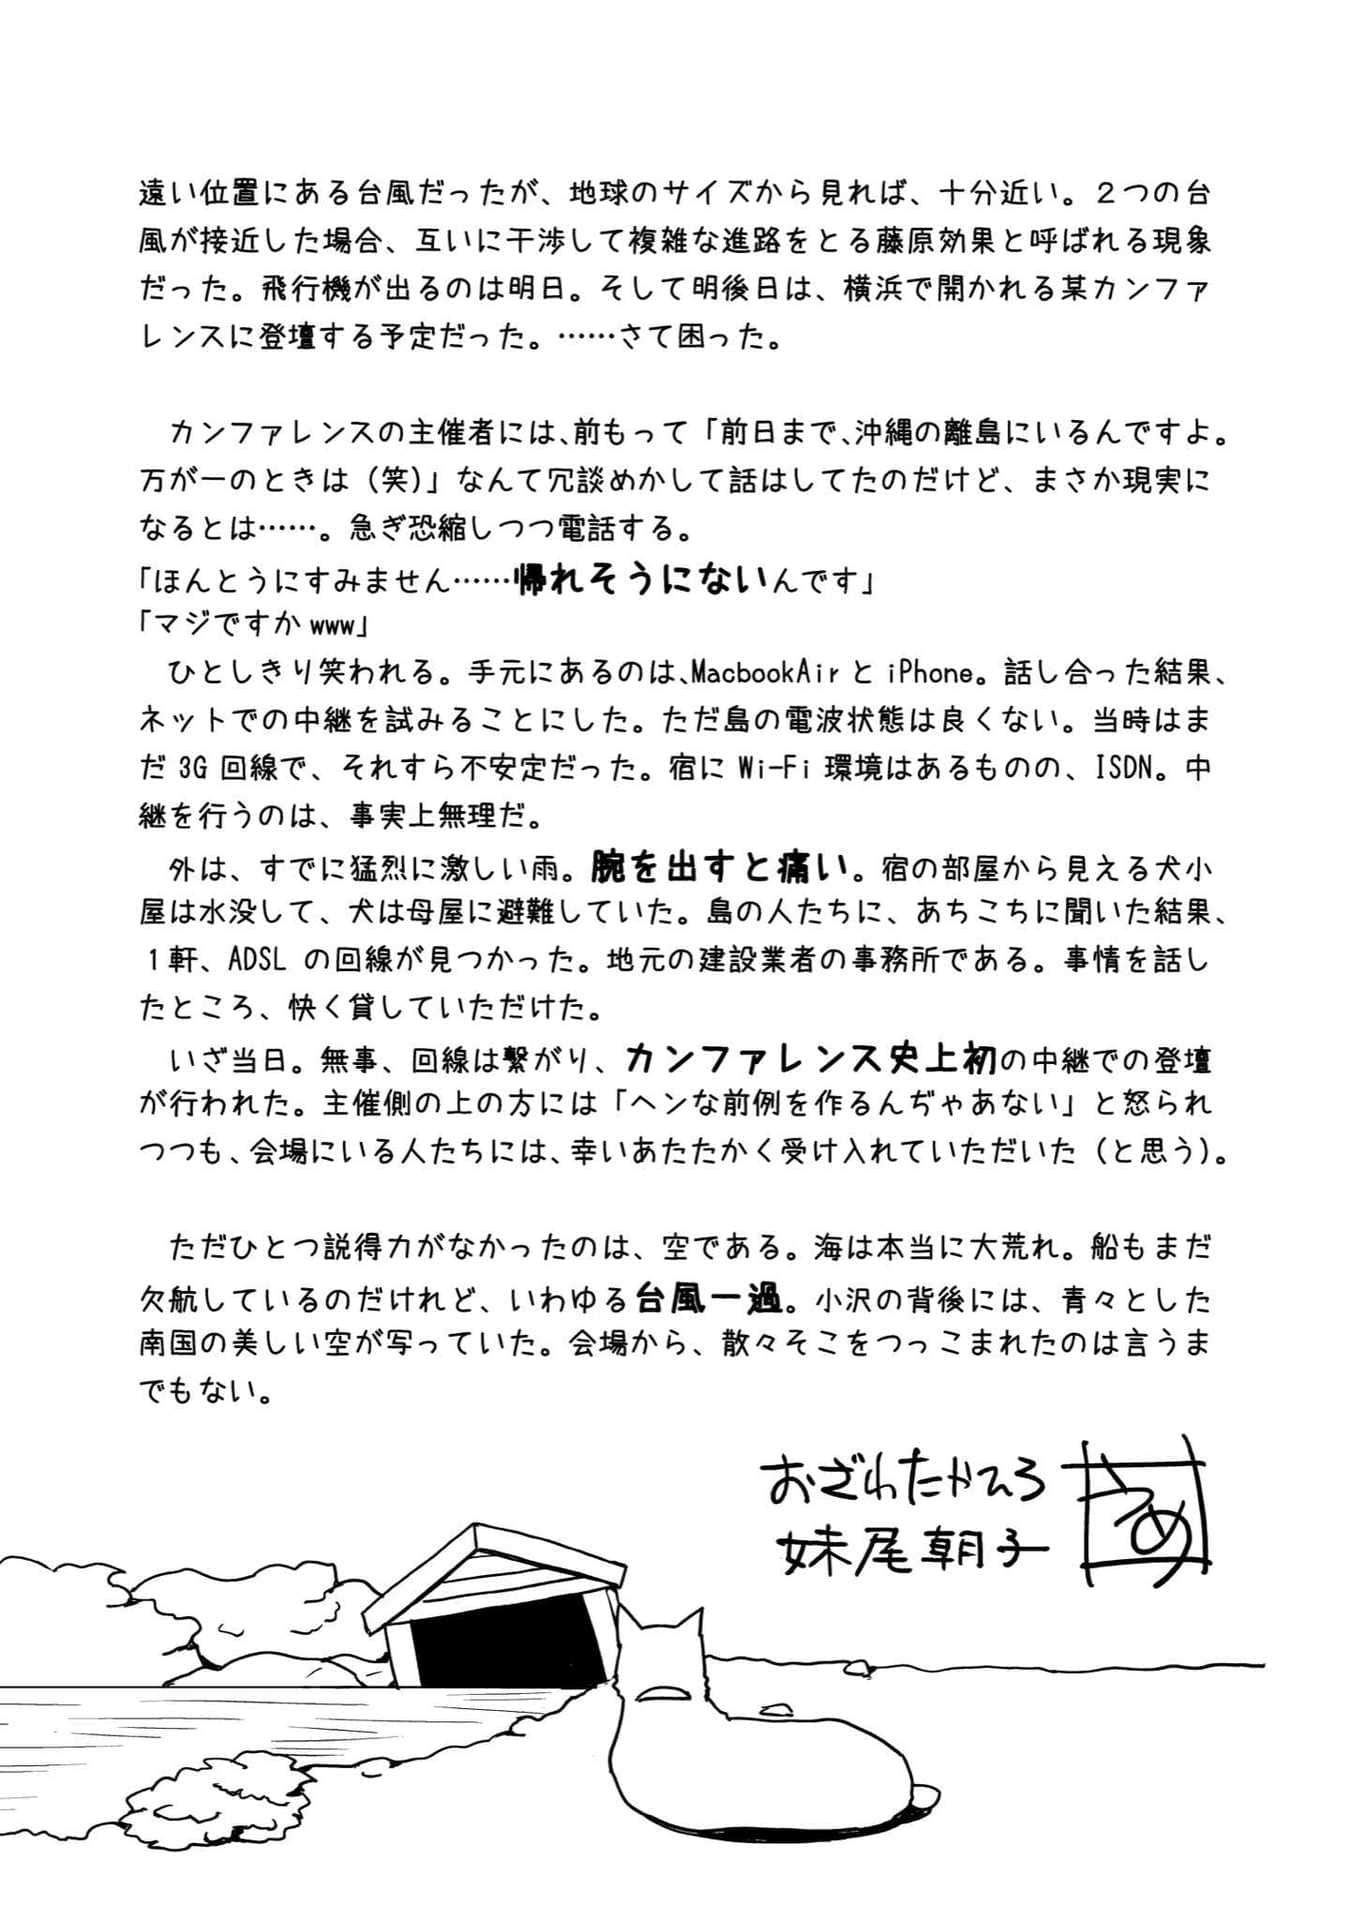 遠い位置にある台風だったが、地球のサイズから見れば、十分近い。２つの台
風が接近した場合、互いに干渉して複雑な進路をとる藤原効果と呼ばれる現象
だった。飛行機が出るのは明日。そして明後日は、横浜で開かれる某カンファ
レンスに登壇する予定だった。……さて困った。
　カンファレンスの主催者には、前もって「前日まで、沖縄の離島にいるんですよ。
万が一のときは（笑）」なんて冗談めかして話はしてたのだけど、まさか現実に
なるとは……。急ぎ恐縮しつつ電話する。
「ほんとうにすみません……帰れそうにないんです」
「マジですか www」
　ひとしきり笑われる。手元にあるのは、MacbookAir と iPhone。話し合った結果、
ネットでの中継を試みることにした。ただ島の電波状態は良くない。当時はま
だ 3G 回線で、それすら不安定だった。宿に Wi-Fi 環境はあるものの、ISDN。中
継を行うのは、事実上無理だ。
　外は、すでに猛烈に激しい雨。腕を出すと痛い。宿の部屋から見える犬小
屋は水没して、犬は母屋に避難していた。島の人たちに、あちこちに聞いた結果、
１軒、ADSL の回線が見つかった。地元の建設業者の事務所である。事情を話し
たところ、快く貸していただけた。
　いざ当日。無事、回線は繋がり、カンファレンス史上初の中継での登壇
が行われた。主催側の上の方には「ヘンな前例を作るんぢゃあない」と怒られ
つつも、会場にいる人たちには、幸いあたたかく受け入れていただいた（と思う）。
　ただひとつ説得力がなかったのは、空である。海は本当に大荒れ。船もまだ
欠航しているのだけれど、いわゆる台風一過。小沢の背後には、青々とした
南国の美しい空が写っていた。会場から、散々そこをつっこまれたのは言うま
でもない。
おざわたかひろ
妹尾朝子
うめ